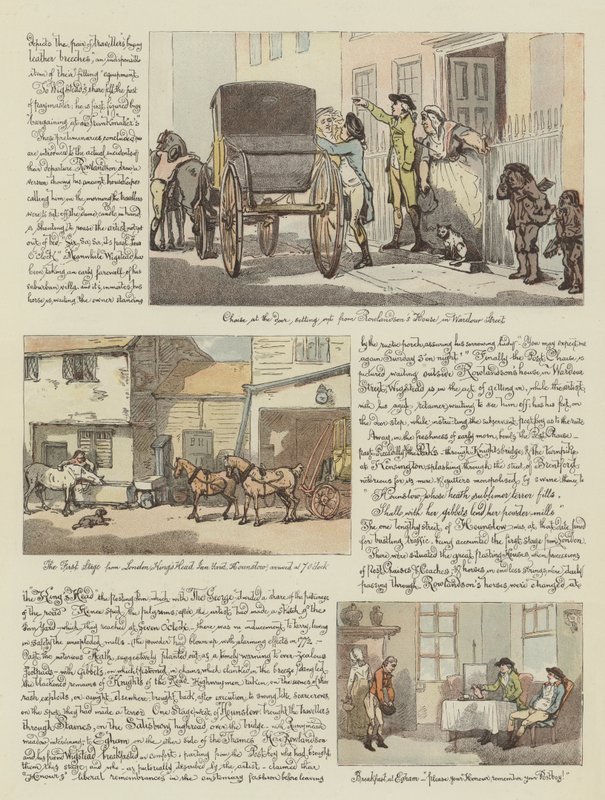 depicts the pair of travellers buying
leather breeches, an indispensible
item of their "fitting" equipment.
To Wigstead's share fell the post
of paymaster; he is first figured busy
bargaining at a "Trunkmaker's"
These preliminaries concluded you
are introduced to the actual incidents of
their departure. Rowlandson drew a
version showing his ancient housekeeper
calling him, on the morning the travellers
were to set off; the dame, candle in hand
is shouting to rouse the artist, not yet
out of bed, "Sir, Sir, Sir, it's past
O'clock." Meanwhile Wigstead has
been taking an early farewell of his
suburban villa, and its inmates; his
horse is waiting the owner standing
Chaise at the door, setting out from Rowlandson's House, in Wardour Street
by the rustic porch, assuring his sorrowing Lady "You may expect me
again Sunday Se'on night!" Finally the Post Chaise is
pictured waiting outside Rowlandson's house in Wardour
Street, Wigstead is in the act of getting in, while the artist,
with his aged retainer, waiting to see him off; has his foot on
the door step, while instructing the subservient post boy as to the route
Away, in the freshness of early morn, bowls the Post Chaise —
past Piccadilly, the Parks — through Knightsbridge, & the turnpike
at Kensington, splashing through the mud of Brentford,
notorious for its mire, & gutters monopolised by swine, thence to
"Hounslow, whose heath sublimer terror fills,
Shall with her gibbets lend her powder-mills"
The one lengthy street of Hounslow was at that date famed
for bustling traffic, being accounted the first stage from London.
There were situated the great Posting-Houses, when processions
of Post Chaises, & Coaches, & horses, in endless strings, were daily
passing through. Rowlandson's horses were changed at
The First Stage from London, King's Head Inn Yard, Hounslow, arrived at 7 o'clock
the "King's Head" the Posting Inn, which with "The George" divided a share of the business
of the road. Hence sped the pilgrims, after the artist had made a sketch of the
Inn-Yard which they reached at Seven O'clock — there was no inducement to tarry, having
in safety the unexploded mills — (the powder had blown up, with alarming effects in 1772
Past the notorious Heath, suggestively planted out, as a timely warning to over-zealous
Footpads — with Gibbets, on which festooned, in chains, which clanked in the breeze, dangled
the blackened remains of "Knights of the Road," Highwaymen taken, on the scenes of their
rash exploits, or caught elsewhere brought back, after execution, to swing, like scarecrows,
on the spot they had made a terror. One Stage west of Hounslow, brought the travellers
through Staines, on the Salisbury highroad, over the bridge, with Runnymede
meadow intervening; to Egham, on the other side of the Thames. Here Rowlandson
and his friend Wigstead breakfasted in comfort — parting from the Post boy who had brought
them this stage, and who — as pictorially described by the artist — claimed their
"Honours'" liberal remembrances in the customary fashion before leaving
Breakfast at Egham — "Please your Honours, remember your Postboy!"